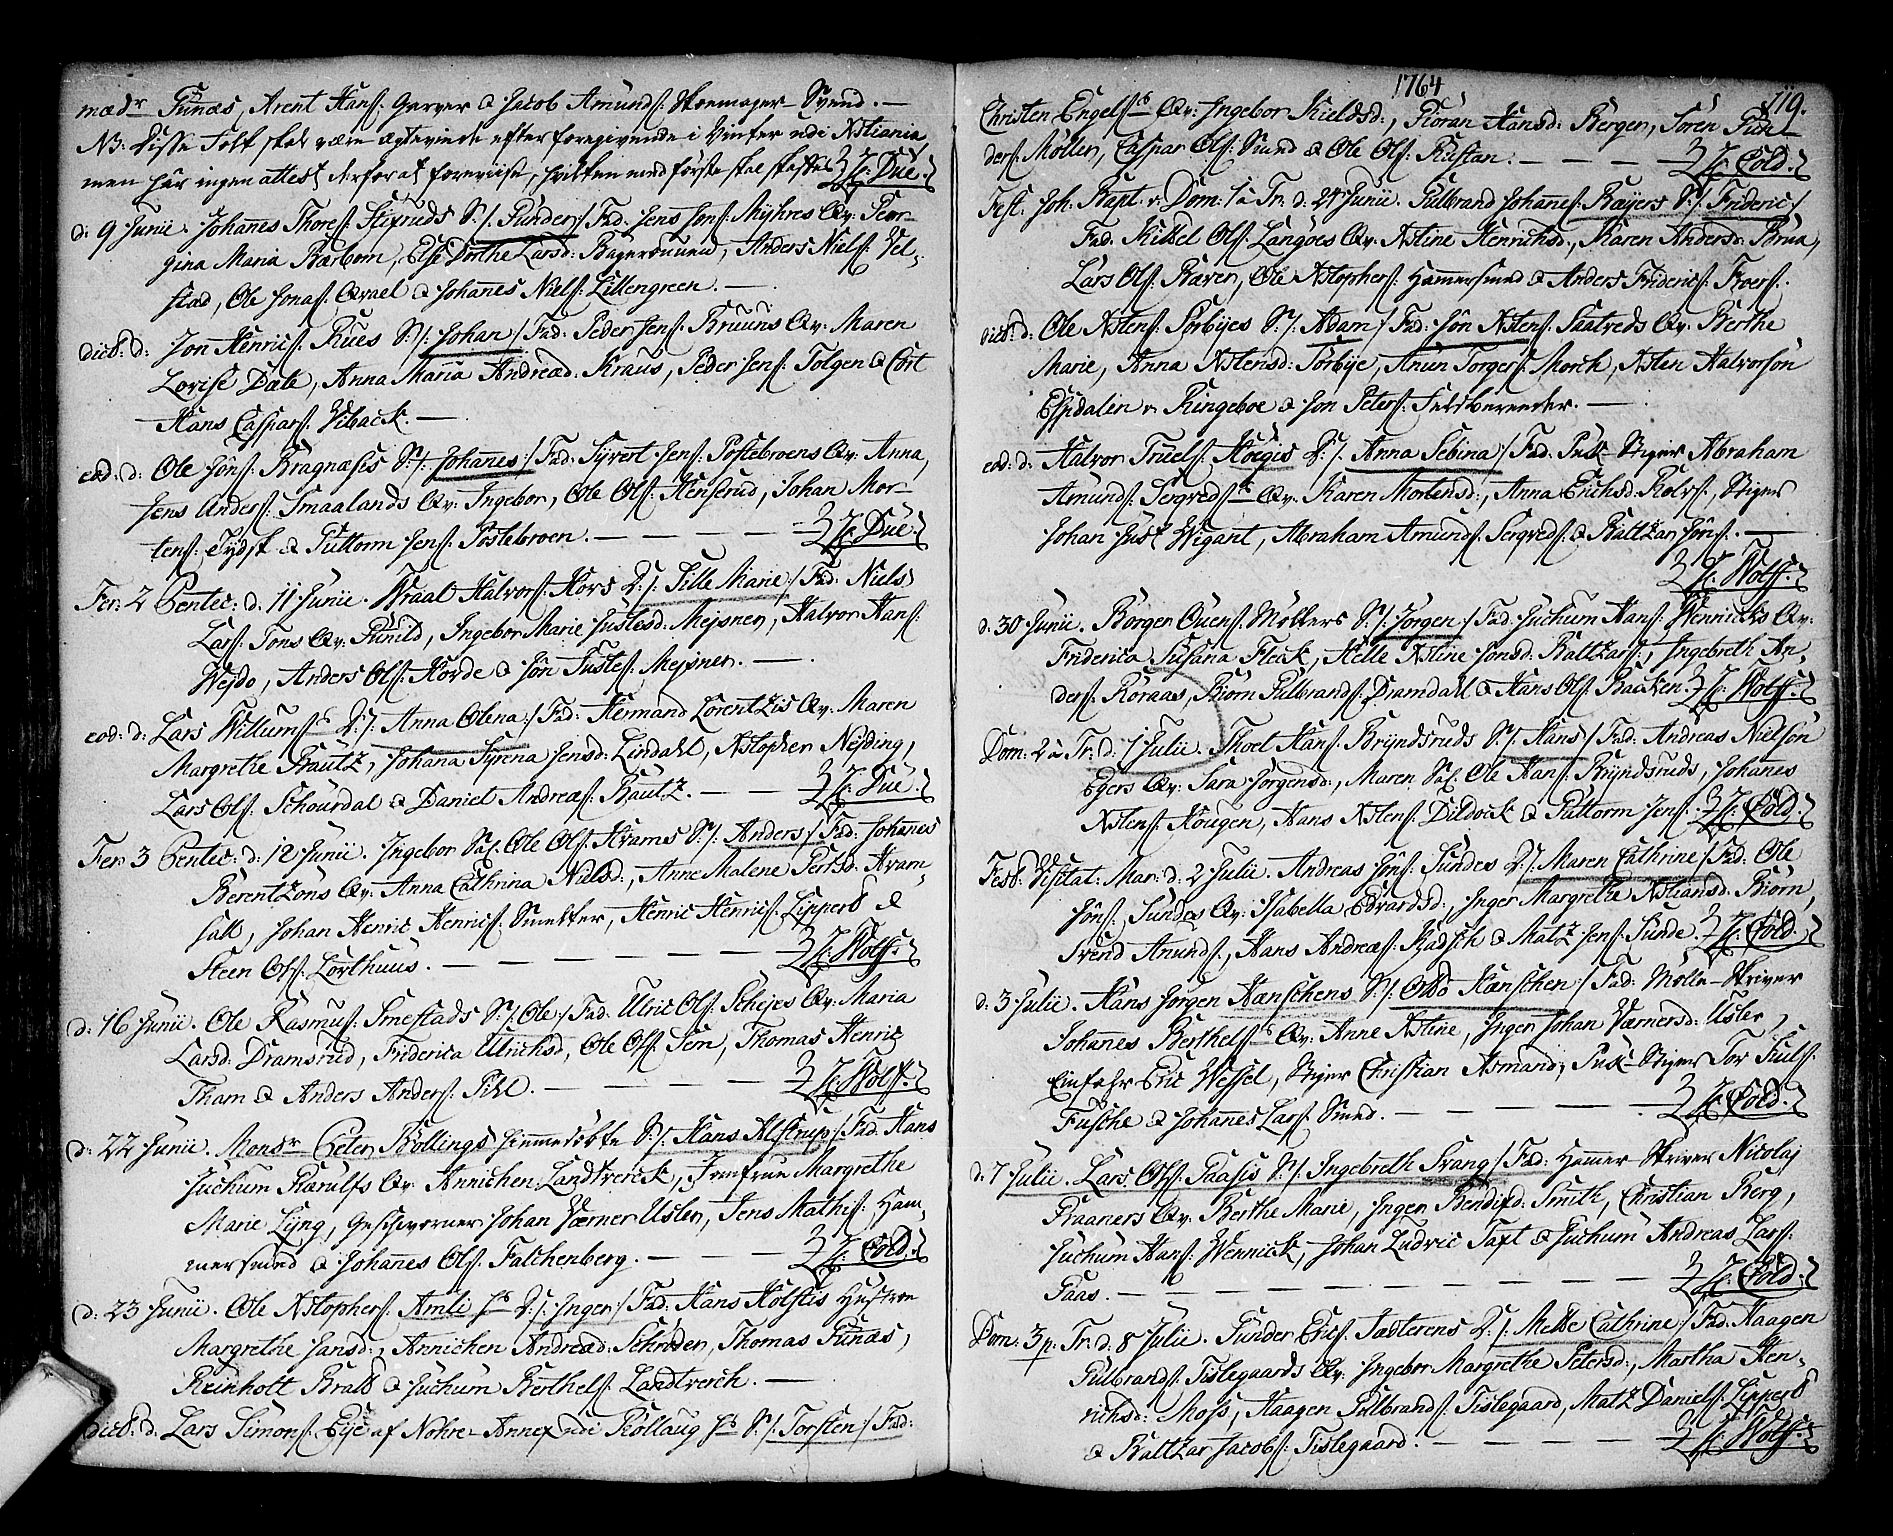 mædr Funæs, Arent Hans: Garver & Jacob Amunds: Skoemager-Svend.—
NB: Disse Folk skal være ægteviede efter foregivende i Vinter udi Xstiania
men har ingen attest derfor at foreviise, hvilken med første skal skaffes H: Due.
d: 9 Junii. Johannes Thores: Stixruds S:/: Gunder/ Fad: Jens Jons: Myhres Qv: Geor-
gina Maria Barbom, Else Dorthe Larsd: Bagersvuen, Anders Niels: Vel-
stad, Ole Jonas: Qvael & Johannes Niels: Lillengreen.—
dict: d: Jon Henrics: Rues S:/: Johan/ Fad: Peder Jens: Bruuns Qv: Maren
Lovise Date, Anna Maria Andreæd: Kraus, Peder Jens: Tolgen & Cort
Hans Caspars: Viback.—
eod: d: Ole Jøns: Kragnæsis S:/: Johannes:/ Fad: Syvert Jens: Postebroens Qv: Anna,
Jens Anders: Smaalands Qv: Ingebor, Ole Ols: Henserud, Johan Mor-
tens: Tydsk & Guttorm Jens: Postebroen. — — — — H: Due.
Fer: 2 Pentec: d. 11 Junii. Wraal Halvors: Hors D:/: Sille Marie:/ Fad: Niels
Lars: Tons Qv: Gunild, Ingebor Marie Justesd: Mejsner, Halvor Hans:
Wejdo, Anders Ols: Horde & Jøn Justes: Mejsner.—
eod: d: Lars Willums: D:/: Anna Olena:/ Fad: Hermand Lorentzis Qv: Maren
Margrethe Bautz, Johana Syrena Jensd: Lindahl, Xstopher Nejding,
Lars Ols: Schourdal & Daniel Andreæs: Bautz. — — H: Due.
Fer: 3 Pentec: d: 12 Junii. Ingebor Sal. Ole Ols: Hrams S:/: Anders:/ Fad: Johannes
Berentzøns Qv: Anna Cathrina Nielsd:, Anne Malene Persd: Hram-
sall, Johan Henric Henrics: Smelter, Henric Henrics: Lippert &
Steen Ols: Lorthuus. — — — — — H: Wolff.
d: 16 Junii. Ole Rasmus: Smestads S:/: Ole:/ Fad: Ulric Ols: Schejes Qv: Maria
Larsd: Dramsrud, Friderica Ulrichsd, Ole Ols: Sem, Thomas Henric
Tham & Anders Anders: Pihl. — — — — H: Wolff.
d: 22 Junii. Monsr Peter Bollings hiemmedøbte S:/: Hans Alstrup:/ Fad: Hans
Juchum Kiærulfs Qv: Annichen Landtverck, Jomfrue Margrethe
Marie Lyng, Geschworner Johan Værner Usler, Jens Mathis: Ham-
mersmed & Johannes Ols: Falchenberg. — — — H: Cold.
d: 23 Junii. Ole Xstophers: Amli D:/: Inger:/ Fad: Hans Holstis Hustroe
Margrethe Jansd:, Annichen Andreæd: Schrøder, Thomas Funæs,
Reinholt Brald & Juchum Berthels: Landtverch.—
dict: d. Lars Simons: Eye af Nohre-Annex udi Rollaug S:/: Torsten:/ Fad:
1764
119.
Christen Engels: Qv: Ingebor Kieldsd:, Giøran Hansd: Bergen, Søren Gun-
ders: Møller, Caspar Ols: Smed & Ole Ols: Rustan. — — — H: Cold.
Fest. Joh: Bapt. & Dom: 1 a Tr: d. 24 Junii. Gulbrand Johannes: Bagers S:/: Frideric/
Fad. Kittel Ols: Langøes Qv: Xstine Henrichsd:, Karen Andersd: Brua,
Lars Ols: Raven, Ole Xstophers: Hammersmed & Anders Friderics: Froer.
dict: d: Ole Xstens: Sørbyes S:/: Adam/ Fad: Jøn Xstens: Saatveds Qv: Berthe
Marie, Anna Xstensd: Sørbye, Anun Torgers: Morch, Xsten Halvorsøn
Espdalen & Ringeboe & Jon Peters: Feldbereeder.—
eod: d: Halvor Truels: Hougis D:/: Anna Sebina:/ Fad: Puk-Stiger Abraham
Amunds: Segveds Qv: Karen Mortensd:, Anna Erichsd: Kolvs:, Stiger
Johan Just Wigant, Abraham Amunds: Segved & Baltzar Jøns:.—
H: Wolff.
d: 30 Junii. Børger Ouens: Møllers S:/: Jørgen:/ Fad: Juchum Hans: Wennicks Qv:
Friderica Susana Fleck, Helle Xstine Jonsd: Baltzars:, Ingebreth An-
ders: Røraas, Biørn Gulbrands: Dramdahl & Hans Ols: Backen. H: Wolff.
Dom: 2 a Tr: d. 1 Julii. Thoel Hans: Bryndsruds S:/: Hans/ Fad: Andreas Nielsøn
Egers Qv: Sara Jørgensd:, Maren Sal. Ole Hans: Bryndsruds, Johannes
Xstens: Hougen, Hans Xstens: Dildock & Guttorm Jens: H: Cold.
Fest: Visitat: Mar: d: 2 Julii. Andreas Jøns: Sundes D:/: Maren Cathrine:/ Fad: Ole
Jøns: Sundes Qv: Isabella Edvardsd:, Inger Margrethe Xstiansd: Biørn,
Svend Amunds:, Hans Andreæs: Radsch & Matz Jens: Sunde. H: Cold.
d: 3 Julii. Hans Jørgen Hænschens S:/: Otto Hænschen:/ Fad: Mølle-Skriver
Johannes Berthels: Qv: Anne Xstine, Inger Johan Værnersd: Usler,
Einfahr Eric Wessel, Stiger Christian Asmand, Puk-Stiger Tor Juuls:
Fusche & Johannes Lars: Smed. — — — — — H: Cold.
d: 7 Julii. Lars Ols: Gaasis S:/: Ingebreth Svang/ Fad: Hamer-Skriver Nicolaj
Praaners Qv: Berthe Marie, Inger Bendixd: Smith, Christian Berg,
Juchum Hans: Wennick, Johan Ludvic Taft & Juchum Andreas Lars:
Gaas. — — — — — — H: Cold.
Dom: 3 p. Tr: d: 8 Julii. Gunder Erics: Sædterens D:/: Mette Cathrine:/ Fad. Haagen
Gulbrands: Tislegaards Qv: Ingebor Margrethe Petersd:, Martha Hen-
richsd: Moss, Haagen Gulbrands: Tislegaard, Matz Daniels: Lippert
& Baltzar Jacobs: Tislegaard. — — — — H: Wolff.